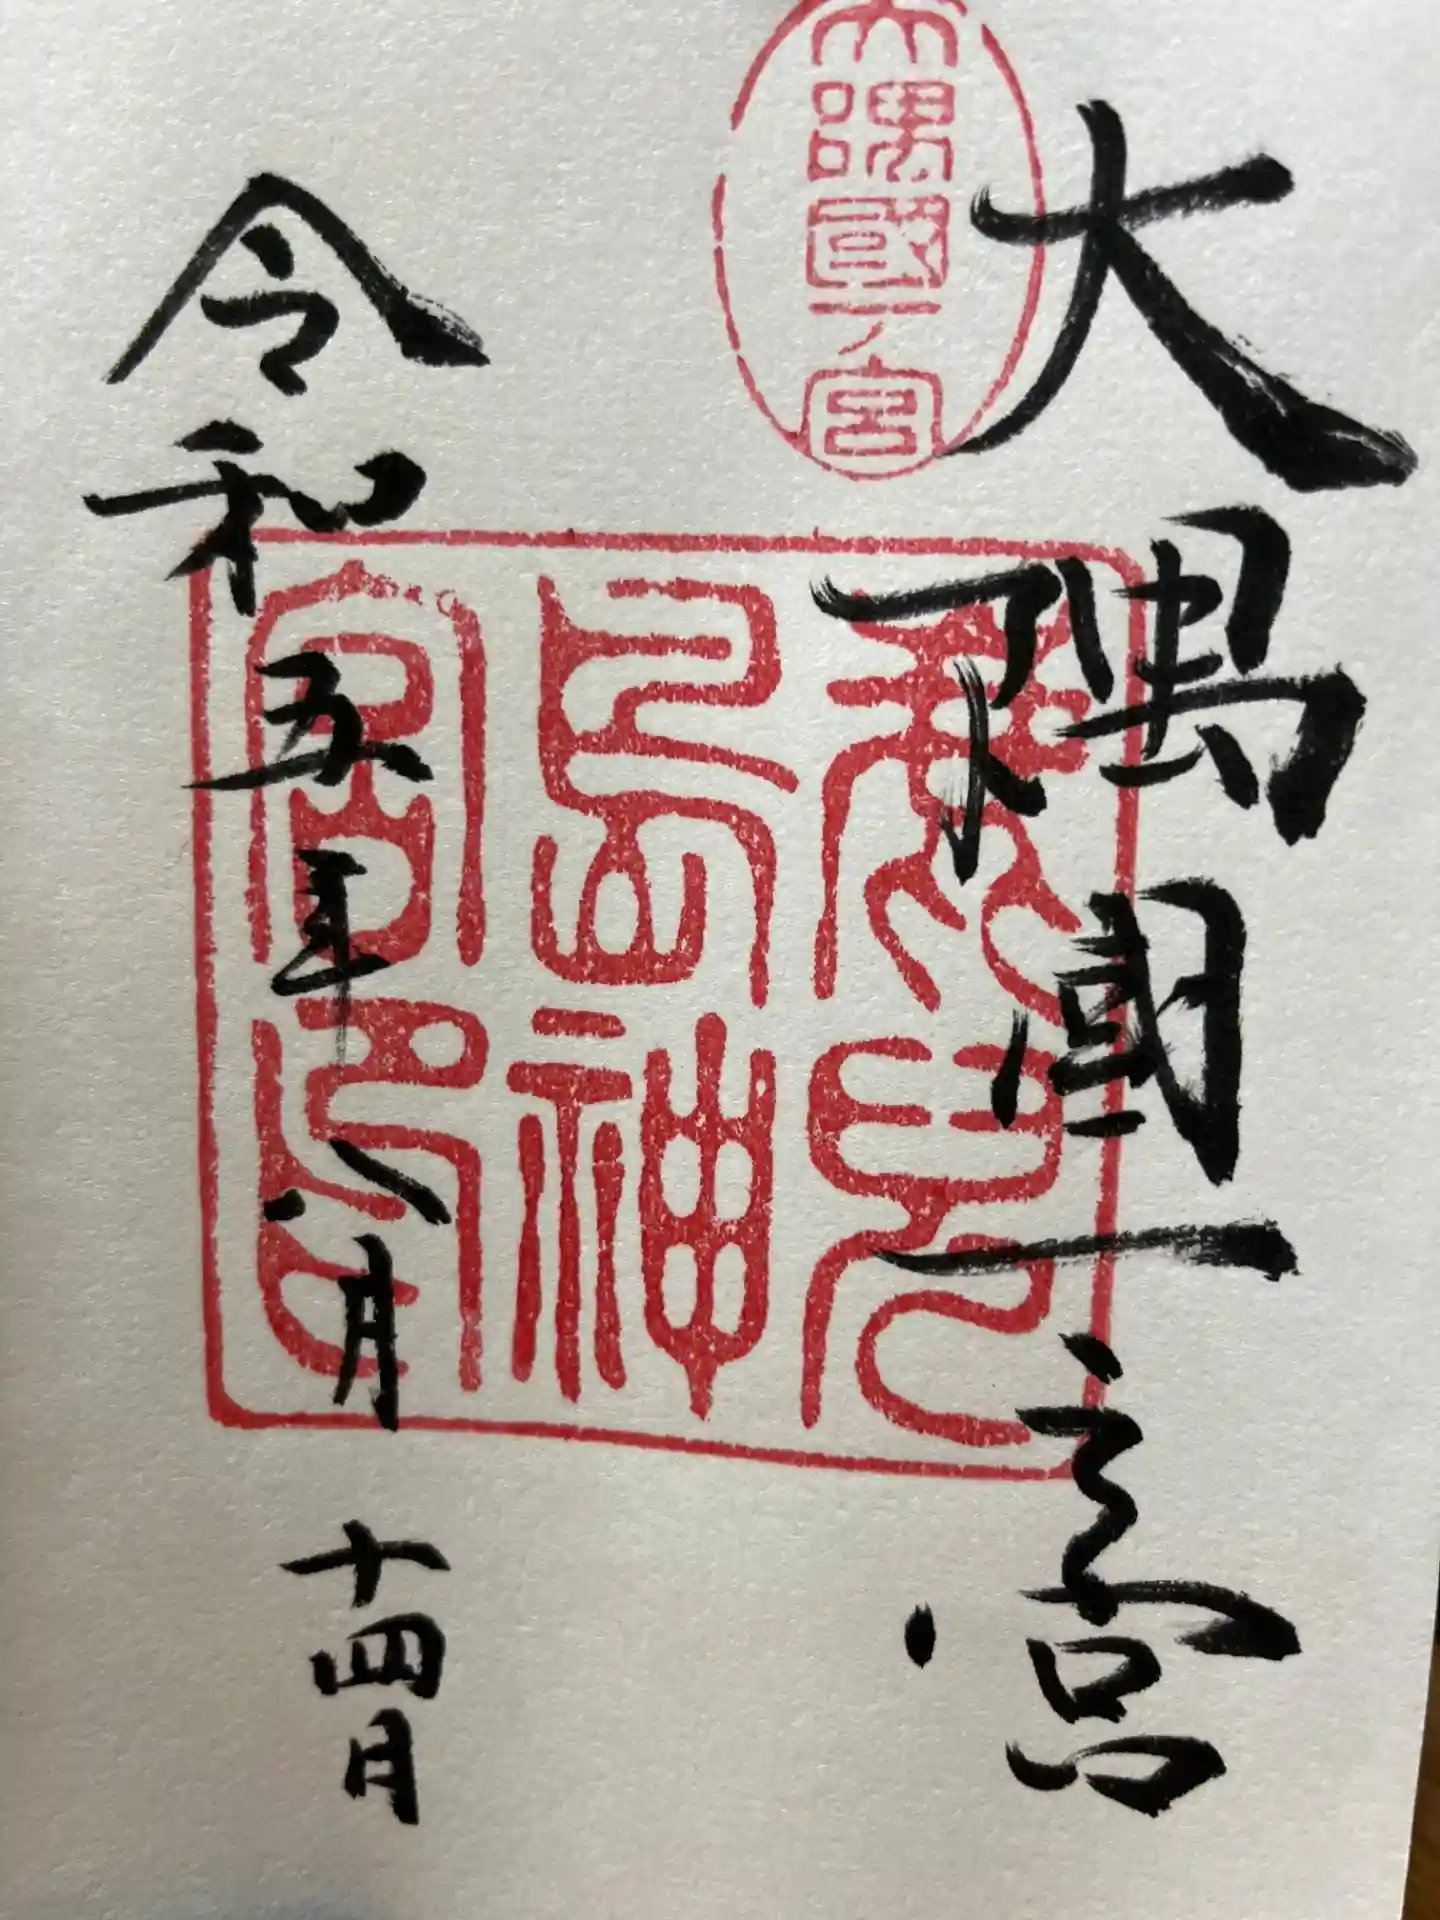 大隅國一之宮
大隅國一ノ宮
鹿兒
島神
宮印
令和五年八月十四日